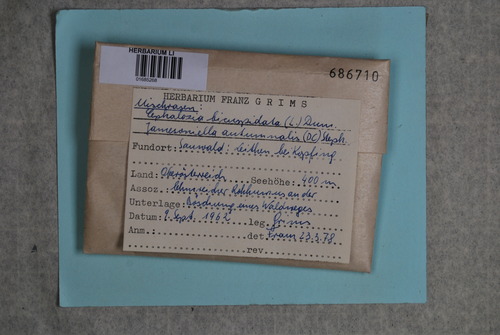 HERBARIUM LI
686710
HERBARIUM FRANZ GRIMS
Mischrasen:
Cephalozia bicuspidata (L.) Dum.
Jamesoniella autumnalis (DC) Steph.
Fundort: Sauwald; Leithen bei Kopfing
Land: Oberösterreich Seehöhe: 400 m
Assoz. an der
Unterlage: Böschung eines Waldweges
Datum: 9. Sept. 1962 leg. Grims
Anm.: det. Grims 23.3.78
rev.